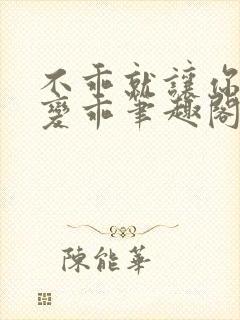 不乖就讓你
變乖筆趣閣
陳能華